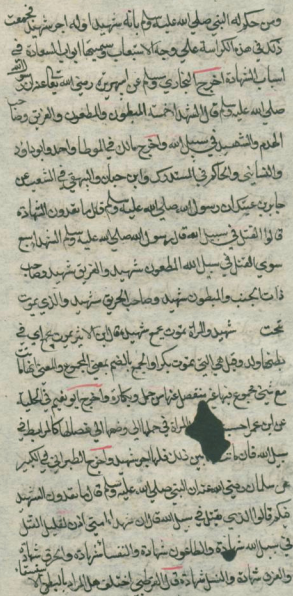 ومن حكم له النبي صلى الله عليه وسلم بانه شهيد اوله اجر شهيد فجمعت
ذلك في هذه الكراسة على وجه الاستيعاب وسميتها ابواب السعادة في
اسباب الشهادة اخرج البخاري ومسلم عن ابي هريرة رضي الله تعالى عنه ان رسول الله
صلى الله عليه وسلم قال الشهداء خمسة المبطون والمطعون والغريق وصاحب
الهدم والشهيد في سبيل الله واخرج مالك في الموطا واحمد وابو داود
والنسائي والحاكم في المستدرك وابن حبان والبيهقي في الشعب عن
جابر بن عتيك ان رسول الله صلى الله عليه وسلم قال ما تعدون الشهادة
قالوا القتل في سبيل الله قال رسول الله صلى الله عليه وسلم الشهداء سبع
سوى القتل في سبيل الله المطعون شهيد والغريق شهيد وصاحب
ذات الجنب والمبطون شهيد وصاحب الحريق شهيد والذي يموت
تحت شهيد والمراة تموت بجمع شهيد قال ابن الاثير يموت بجمع اي في
بطنها ولد وقيل هي التي تموت بكرا والجمع بالضم بمعنى المجموع والمعنى انها ماتت
مع شيء مجموع فيها غير منفصل عنها من حمل او بكارة واخرج ابو نعيم في الحلية
عن ابن عمر المراة في حملها الى وضعها الى فصالها كالمرابط في
سبيل الله فان ماتت بين ذلك فلها اجر شهيد واخرج الطبراني في الكبير
عن سلمان رضي الله عنه ان النبي صلى الله عليه وسلم قال ما تعدون الشهيد
فيكم قالوا الذي يقتل في سبيل الله قال ان شهداء امتي اذن لقليل القتل
في سبيل الله شهادة والطاعون شهادة والنفساء شهادة والحرق شهادة
والغرق شهادة والسل شهادة قال القرطبي اختلف هل المراد بالبطن الا